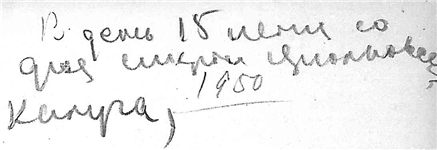 В день 15 летия со
дня смерти Циолковск
1950
Калуга,